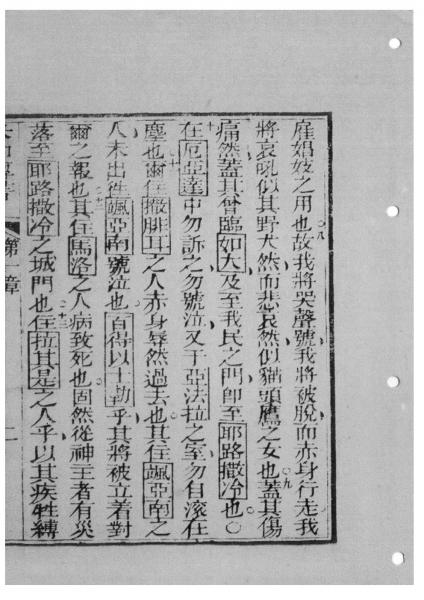 雇娼妓之用也○八故我將哭聲號我將被脫而赤身行走我
將哀吼似其野犬然而悲哀然似貓頭鷹之女也○九蓋其傷
痛然蓋其曾臨如大及至我民之門即至耶路撒冷也○
十在厄亞達中勿訴之勿號泣又于亞法拉之室勿自滾在
塵也十一爾住撒腓耳之人赤身辱然過去也其住颯亞南之
人未出徃颯亞南號泣也百得以士勒乎其將被立着對
爾之報也十二其住馬洛之人病致死也固然從神主者有災
落至耶路撒冷之城門也○十三住拉其是之人乎以其疾牲縛
第一章 二